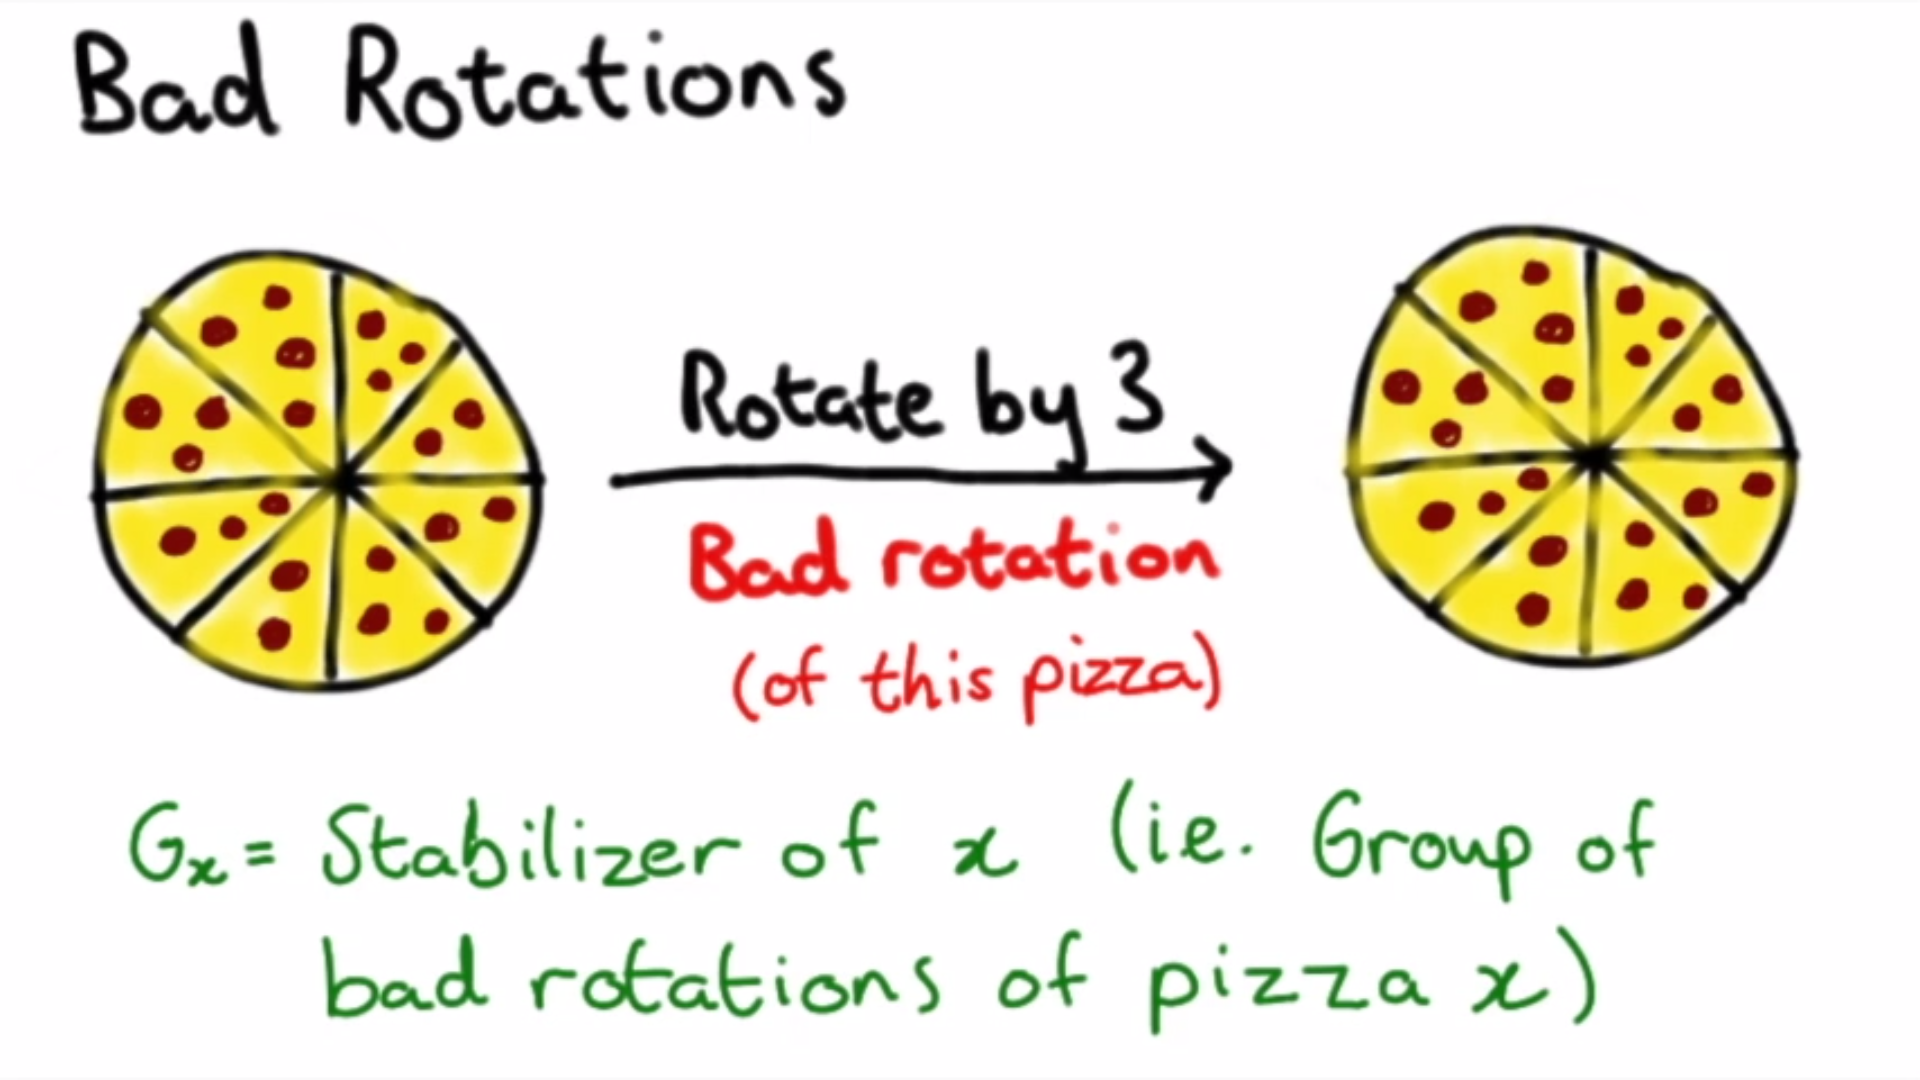 Bad Rotations
Rotate by 3
Bad rotation
(of this pizza)
Gx = Stabilizer of x (ie. Group of
bad rotations of pizza x)